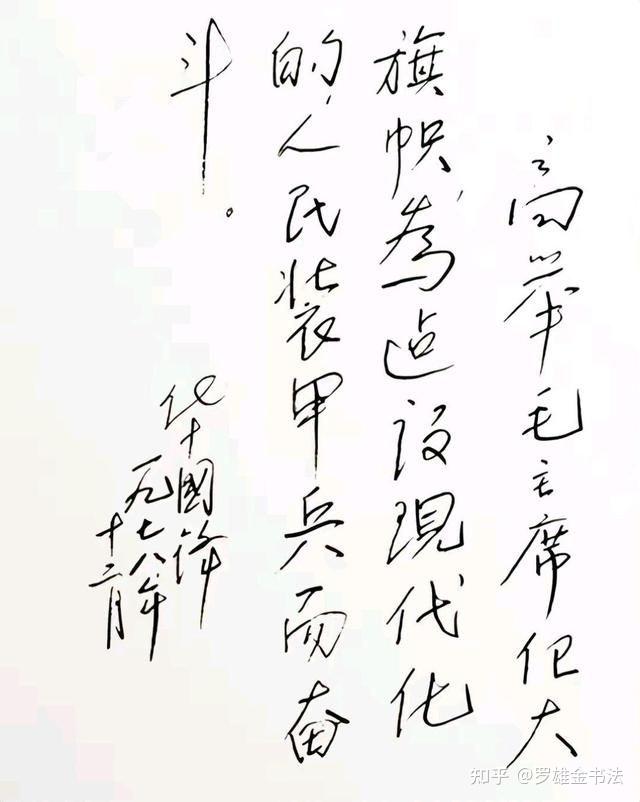 高举毛主席伟大
旗帜為迠设現代化
的人民装甲兵而奋
斗。
华國锋
一九七八年
十二月
知乎 @罗雄金书法